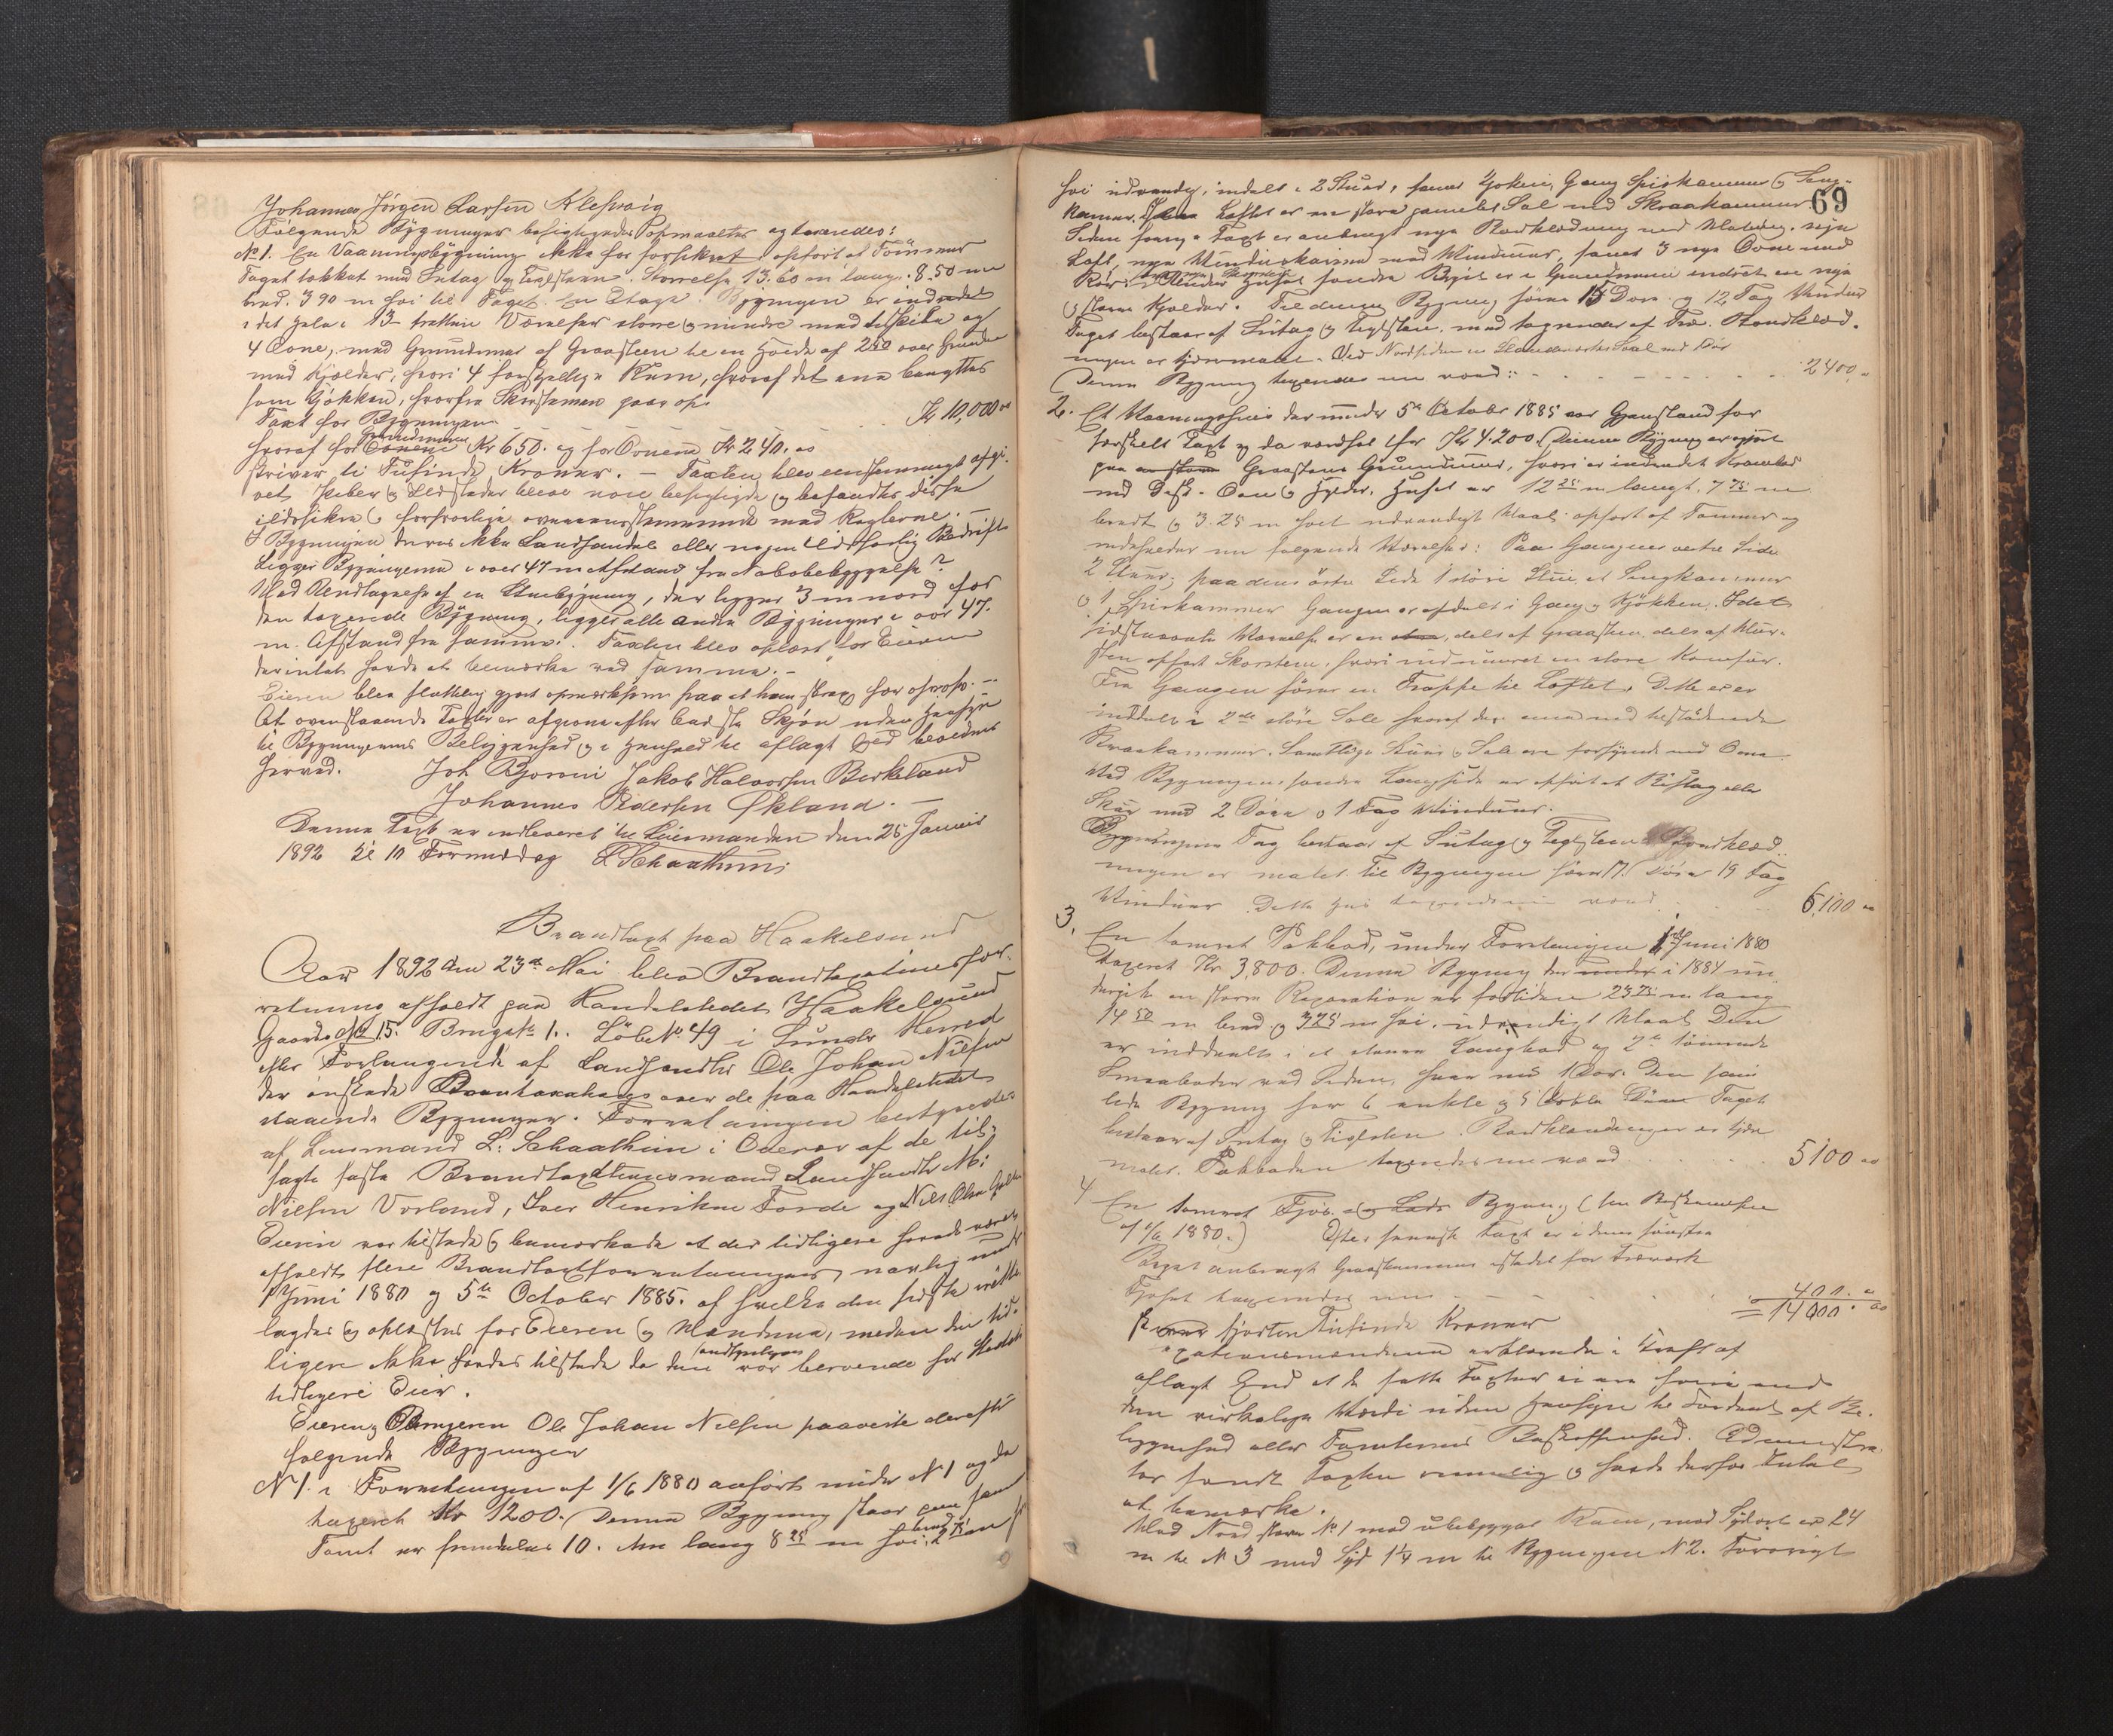 Johannes Jørgen Larsen Klepsvig
Følgende Bygninger besigtigedes Opmaaltes og taxeredes:
No 1. En Vaaningsbygning ikke før forsikret opført af Tømmer
Taget tækket med Sutag og Teglsteen. Størrelse 13.60 m lang. 8.50 m
bred. 3 90 m høi til Taget. En Etage. Bygningen er indredet
i det hele i 13 Værelser større og mindre med
4 Ovne, med Grundmur af Graasteen til en Høide af 2 50 over Grunden
med Kjælder, hvori 4 forskjellige Rum, hvoraf det ene benyttes
som Kjøkken, hvorfra Skorstenen gaar op.
Taxt for Bygningen - - - - Kr 10,000 00
hvoraf for Grundmuren Kr 650. og for Ovnene Kr 240. 00
skriver ti Tusinde Kroner. — Taxten blev eenstemmigt afgi-
vet. Piber og Ildsteder bleve nøie besigtigede og befandtes disse
ildsikre og forsvarlige overeensstemmende med Reglerne. —
I Bygningen drives ikke Landhandel eller nogen Ildsfarlig Bedrift
Ligger Bygningerne i over 47 m Afstand fra Nabobebyggelse?
Med Undtagelse af en Stuebygning, der ligger 3 m nord for
den taxerede Bygning, ligger alle andre Bygninger i over 47.
m. Afstand fra samme. Taxten blev oplæst for Eieren
der intet havde at bemærke ved samme. —
Eieren blev gjort opmærksom paa at han strax
At ovenstaaende Taxter er afgivne efter bedste Skjøn uden Hensyn
til Bygningernes Beliggenhed og i Henhold til aflagt Eed bevidnes
herved. Joh Bjoröen Jakob Halvorsen Birkeland
Johannes Pedersen Økland. —
Denne Taxt er indleveret til Lensmanden den 25 Januar
1892 Kl 10 Formiddag L Schaathun
Brandtaxt paa Haakelsund
Aar 1892 den 23de Mai blev Brandtaxationsfor-
retning afholdt paa Handelsstedet Haakelsund
Gaards No 15. Brugs No 1. Løbe No 49 i Sunds Herred
efter Forlangende af Landhandler Ole Johan Nilsen
der ønskede Brandtaxation over de paa Handelsstedet
staaende Bygninger. Forretningen bestyredes
af Lensmand L. Schaathun i Overvær af de til-
sagte faste Brandtaxtionsmænd Landhandler M.
Nilsen Vorland, Iver Henriksen Førde og Nils Olsen
Eieren var tilstede og bemærkede at der tidligere havde været
afholdt flere Brandtaxtforretninger, navnlig under
1 Juni 1880 og 5te October 1885. af hvilke den sidste
lagdes og oplæstes for Eieren og Mændene, medens den tid-
ligere ikke havdes tilstede da den var beroende
tidligere Eier.
Eieren og Brugeren Ole Johan Nilsen paaviste derefter
følgende Bygninger
N 1. i Forretningen af 1/6 1880 anført under N 1 og da
taxeret Kr 1200. Denne Bygning staar paa samme
Tomt er fremdeles 10. m lang 8 25 m bred, 2 75 m
69
høi udvendig, indelt i 2 Stuer, samt Kjøken, Gang Spiskammer og Seng-
kammer. Loftet er en større gamel Sal med Skraakammer
Siden forrige Taxt er anbragt nye Bordklædning med Maling. nye
Loft, nye Vinduskarme med Vinduer, samt 3 nye Ovne med
Rør. Under Huset søndre er i Grundmuren indredet en nye
og større Kjælder. Til denne Bygning hører 15 Døre og 12 Fag Vinduer
Taget bestaar af Sutag og Teglsteen. med tagrender af Træ. Bordklæd-
ningen er tjæremalet. Ved Nordsiden en
Denne Bygning taxeredes nu værd: - - - - 2400. 00
2. Et Vaaningshuus der under 5te October 1885 var Gjenstand for
særskilt Taxt og da værdsat for Kr 4.200. Denne Bygning er opført
paa Graastens Grundmur, hvori er indredet Krambod
med Disk. Ovn og Hylder. Huset er 12 25 m langt. 7 75 m
bredt og 3.25 m høit udvendigt Maal opført af Tømmer og
indeholder nu følgende Værelser: Paa Gangens vestre Side
2 Stuer; paa dens østre Side 1 større Stue et Sengkammer
og 1 Spiskammer Gangen er afdelt i Gang og Kjøkken. I det
sidstnævnte Værelse er en dels af Graasten dels af Mur-
sten opført Skorsten, hvori indmuret en større Komfur.
Fra Gangen fører en Trappe til Loftet. Dette er
inddelt i 2de større Sale hvoraf den ene med tilstødende
Skraakammer. Samtlige Stuer og Sale ere forsynede med Ovne.
Ved Bygningens søndre Langside er opført et eller
Skur med 2 Døre og 1 Fag Vinduer.
Bygningens Tag bestaar af Sutag og Teglsteen Bordklæd-
ningen er malet. Til Bygningen hører 17 Døre 19 Fag
Vinduer. Dette Hus taxeredes nu værd. . . 6,100 00
3. En tømret Pakbod, under Forretningen 1ste Juni 1880
taxeret Kr 3,800. Denne Bygning der i 1884 un
dergik en større Reparation er fortiden 23 75 m lang
14 50 m bred og 3 25 m høi. udvendigt Maal Den
er inddeelt i et større Langbod og 2de tømrede
Smaaboder ved Siden, hver med 1 Dør. Den sam
lede Bygning har 6 enkle og 5 doble Døre Taget
bestaar af Sutag og Teglsten. Bordklædningen er tjære
malet. Pakboden taxeredes nu værd . . . 5100 00
4 En tømret Fjøs Bygning (se Beskrivelse
af 1/6 1880.) Efter seneste Taxt er i dens søndre
anbragt Graastensmur istedet for Træværk
Fjøset taxeredes nu — — 400. 00
= 14000. 00
fjorten Tusinde Kroner
Taxationsmændene erklærede i Kraft af
aflagt Eed at de satte Taxter ei ere høiere end
den virkelige Værdi uden Hensyn til Fordeel af Be-
liggenhed eller Tomternes Beskaffenhed. Administra
tor fandt Taxten rimelig og havde derfor Intet
at bemærke.
Mod Nord støder No 1 mod ubebygget Rum, mod Sydost er 24
m til N 3 mod Syd 14 m til Bygningen N 2. Forøvrigt